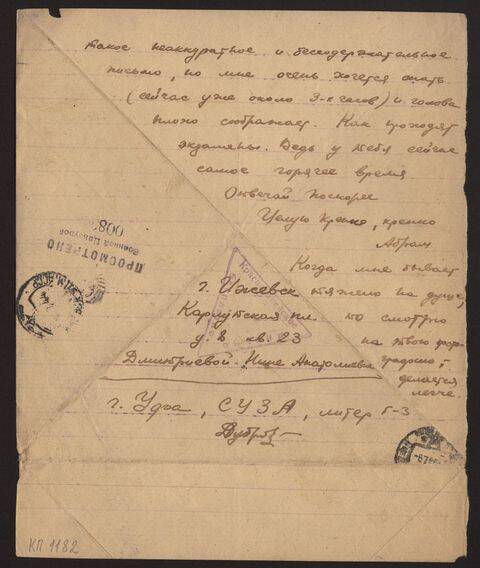 такое неаккуратное и бессодержательное
письмо, но мне очень хочется спать
(сейчас уже около 3-х часов) и голова
плохо соображает. Как проходят
экзамены. Ведь у тебя сейчас
самое горячее время.
Отвечай поскорее
Целую крепко, крепко
Абрам
Когда мне бывает
тяжело на душе,
то смотрю
на твою фото-
графию и
делается
легче.
г. Ижевск
Карлутская пл.
д. 8 кв 23
Дмитриевой Нине Анатолиевне
г. Уфа, СУЗА, литер Г-3
ПРОСМОТРЕНО
Военной Цензурой
008
КП 1182